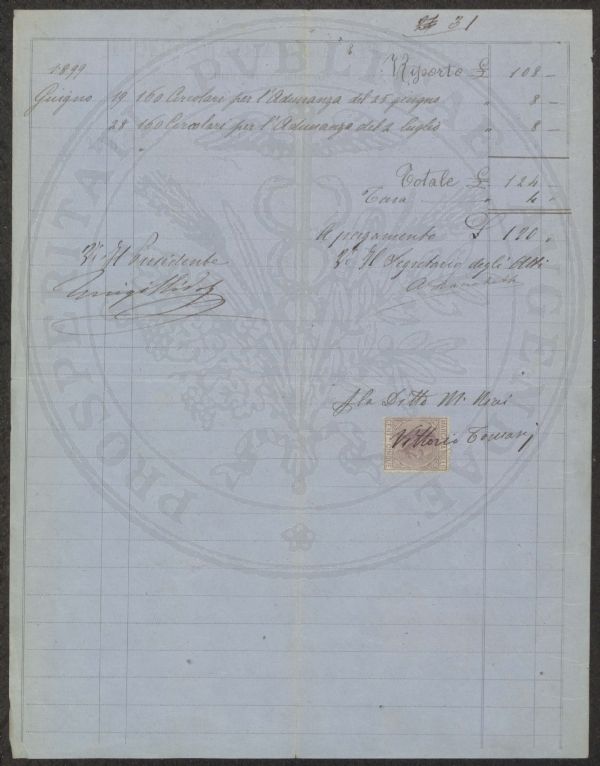 31
Riporto £ 108 –
1899
Giugno 19 160 Circolari per l'Adunanza del 25 giugno " 8 –
28 160 Circolari per l'Adunanza del 2 luglio " 8 –
"
Totale £ 124 –
Tara " 4 "
A pagamento £ 120 "
Vo Il Presidente
Vo Il Segretario degli Atti
Luigi
p la Ditta M.
Vittorio
PROSPERITATI PVBLICAE AVGENDAE